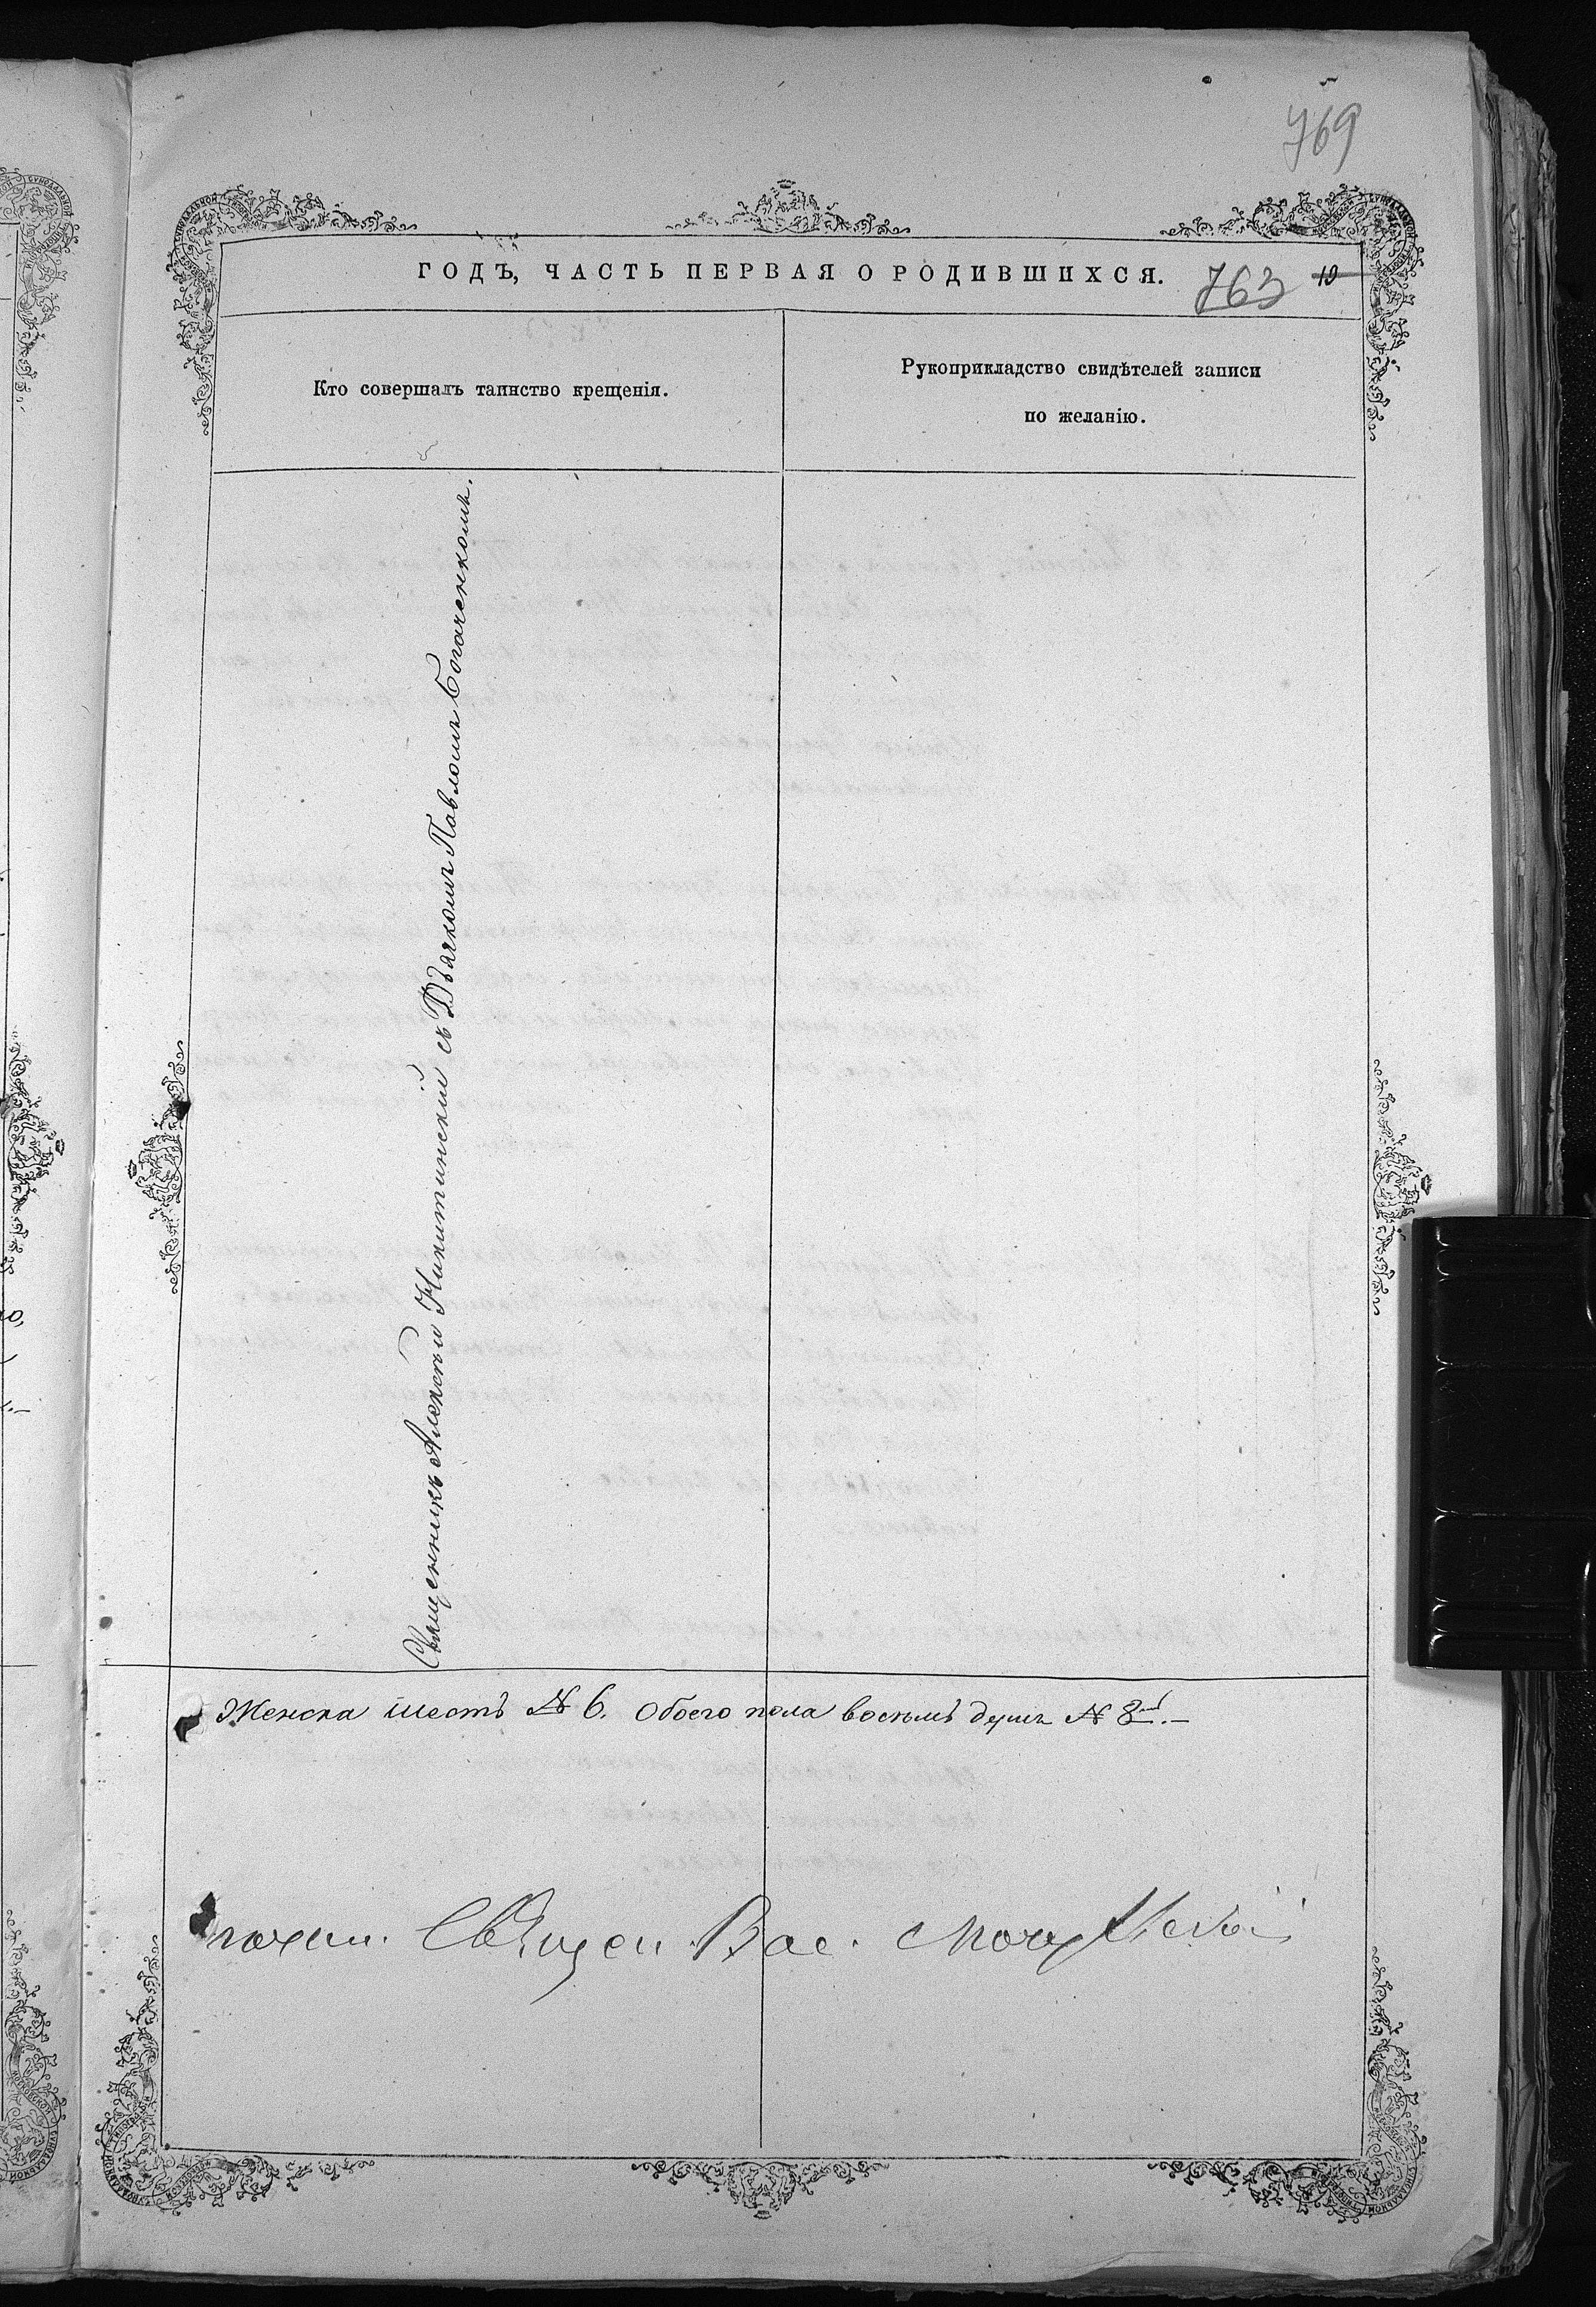 769
ГОДЪ, ЧАСТЬ ПЕРВАЯ О РОДИВШИХСЯ. 763 10
Кто совершалъ таинство крещенія.
Рукоприкладство свидѣтелей записи
по желанію.
Священникъ Алексѣй Никитинскій съ Дьячкомъ Павломъ Богаченкомъ.
Женска шесть № 6. Обоего пола восемь душъ № 8.
Священ. Вас.